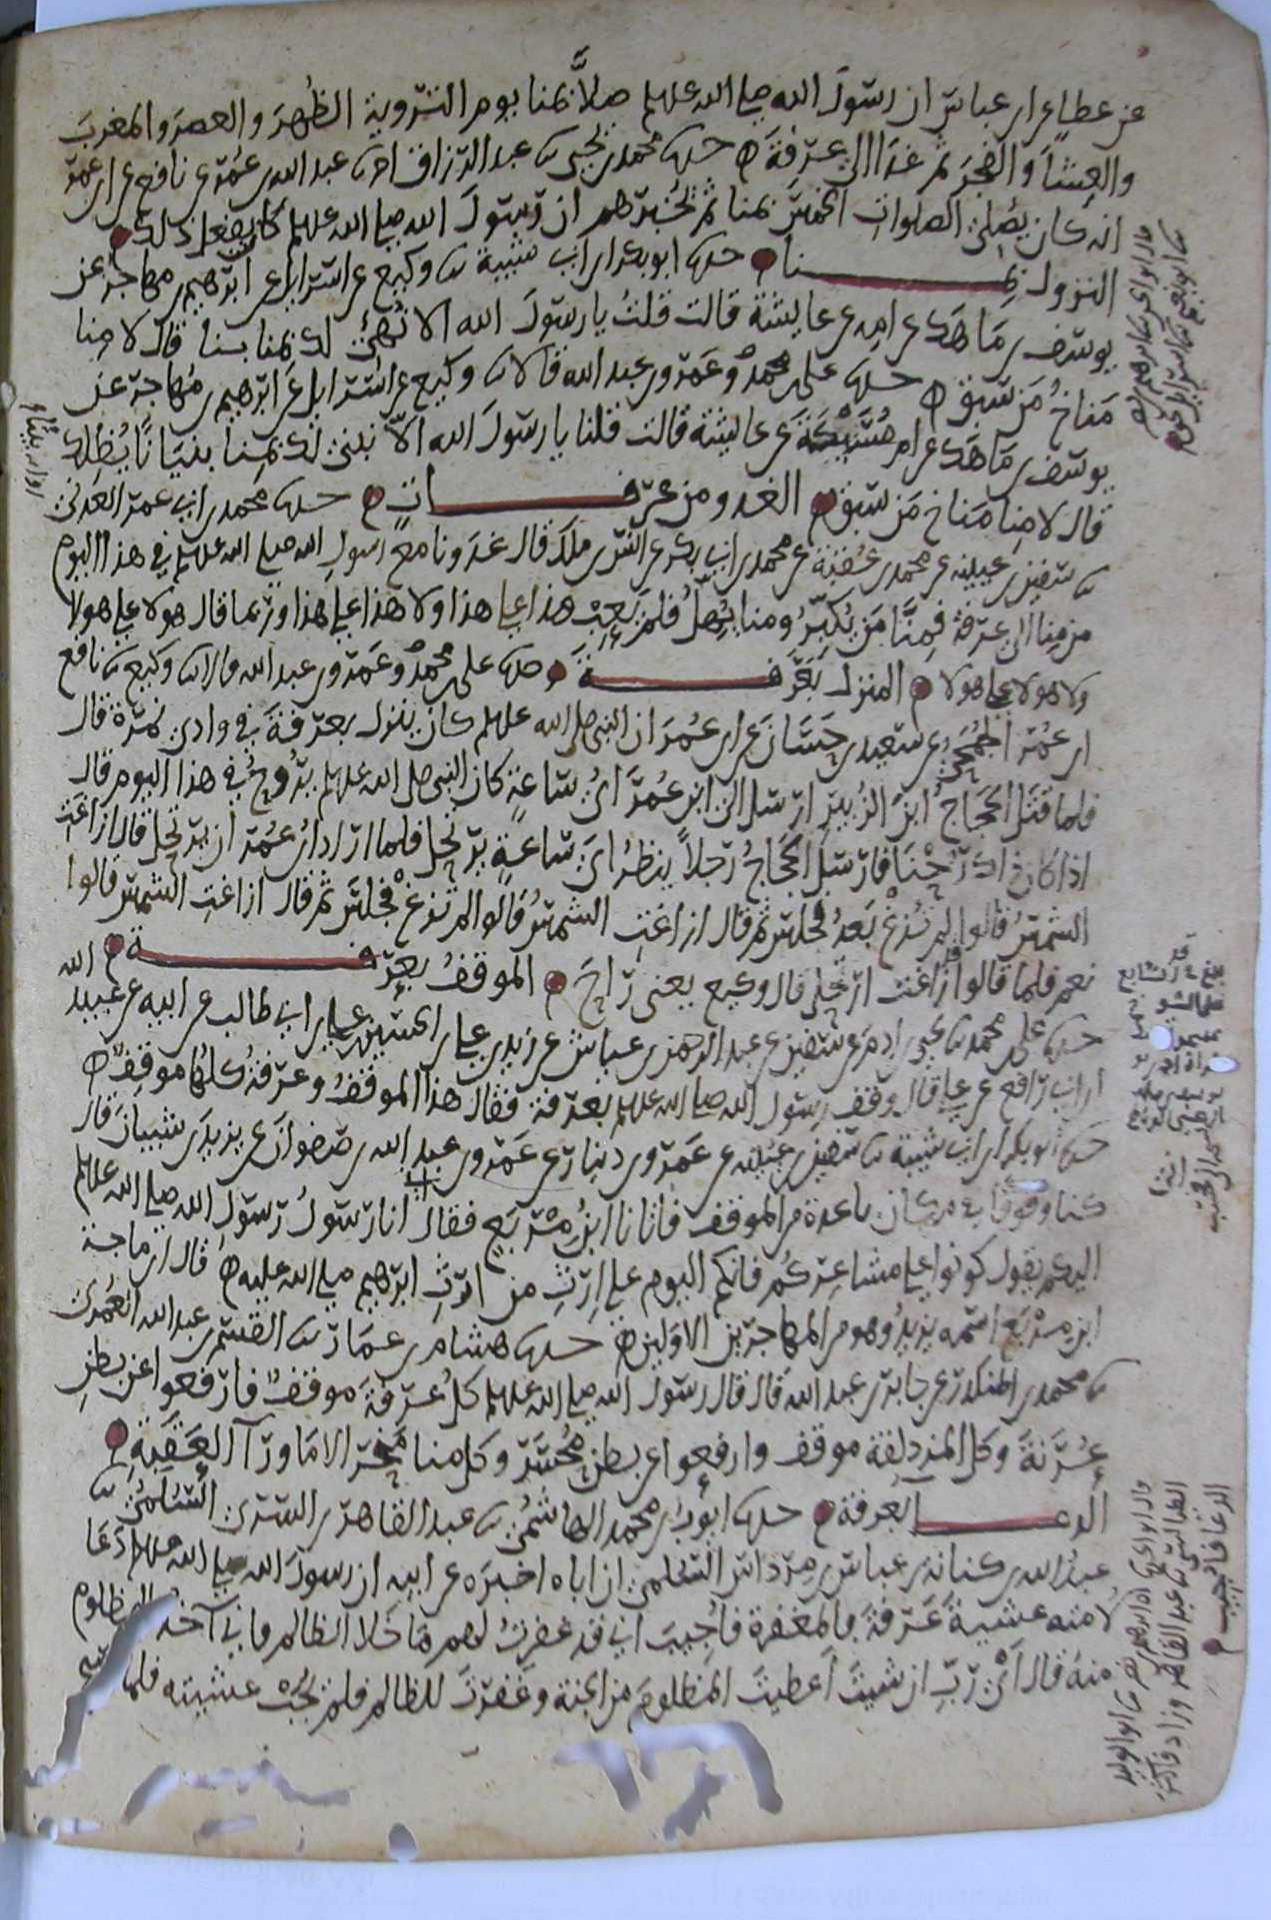 عن عطاء عن ابن عباس ان رسول الله صلى الله عليه وسلم صلَّى بمنا يوم التروية الظُهرَ والعصرَ والمغربَ
والعِشَآ والفجرَ ثم غدَا الى عرفةَ ه حدثنا محمد بن يحيى ثنا عبد الرزاق انا عبد الله بن عُمَر عن نافع عن ابن عمر
انه كان يُصلي الصلوات الخمسَ بمنا ثم يُخبرهم ان رسولَ الله صلى الله عليه وسلم كان يفعل ذلك
النزول بمنا حدثنا ابو بكر ابن ابي شيبة ثنا وكيع عن اسرائيل عن ابرهيم بن مهاجر عن
يوسف بن مَاهَك عن امه عن عايشة قالت قلتُ يا رسولَ الله الا نبني لك بمنا بيتا قال لا مِنا
مَناخُ مَن سبق ه حدثنا علي بن محمدٍ وعَمرو بن عبد الله قالا ثنا وكيع عن اسرائيل عن ابرهيم بن مُهاجر عن
يوسف بن مَاهَك عن امه مُسَيْكةَ عن عايشة قالت قلنا يا رسولَ الله الا نبني لك بمِنا بنيَانًا يُظلك
قال لا مِنا مَناخ مَن سَبق الغدو من عرفات حدثنا محمد بن ابي عمر العَدني
ثنا سفين بن عيينه عن محمد بن عُقبة عن محمد بن ابي بكر عن انس بن ملك قال غدَونا مع رسولِ الله صلى الله عليه وسلم في هذا اليوم
من مِنا الى عرفة فمِنَّا مَن يُكبّرُ ومنا من يُهلُّ فلم يَعِبْ هذا على هذا ولا هذا على هذا وربما قال هولا على هولا
ولا هولا على هولا المنزل بعَرفة حدثنا علي بن محمدٍ وعَمرو بن عبد الله قالا ثنا وكيع ثنا نافع
ابن عُمر الجُمَحيُّ عن سَعيد بن حَسَّانَ عن ابن عُمرَ ان النبي صلى الله عليه وسلم كان ينزل بعرفةَ في وادي نمرة قال
فلما قتَل الحجاجُ ابنَ الزُبيرِ ارسل الى ابن عُمرَ ايُّ ساعةٍ كان النبي صلى الله عليه وسلم يرُوحُ في هذا اليوم قال
اذا كان ذلك رُحْنا فارسَلَ الحجاجُ رَجلاً ينظرُ ايَ سَاعةٍ يرتحل فلما ارادَ ابنُ عُمرَ ان يرتحل قال ازاغت
الشمسُ قالوا لم تزغْ بَعدُ فجلسَ ثم قال ازاغت الشمسُ قالوا لم تزغْ فجلسَ ثم قال ازاغت الشمس قالوا
نعم فلما قالوا قد زاغت ارتحل قال وكيع يعني رَاحَ الموقفُ بعرفة
حدثنا علي بن محمد ثنا يحيى بن ادم عن سفين عن عبد الرحمن بن عياش عن زيد بن علي بن الحسين بن علي بن ابي طالب عن ابيه عن عبيد الله
ابن ابي رافع عن علي قال وقف رسول الله صلى الله عليه وسلم بعرفة فقال هذا الموقفُ وعرفةُ كلها موقفٌ ه
حدثنا ابو بكر ابن ابي شيبة ثنا سفين بن عيينه عن عَمرو بن دينار عن عَمرو بن عبد الله بن صفوانَ عن يزيد بن شيبانَ قال
كنا وقوفًا في مكان تباعده من الموقف فاتانا ابنُ مِرْبَعٍ فقال انا رسولُ رسولِ الله صلى الله عليه وسلم
اليكم يقول كونوا على مشاعِركُم فانكم اليوم على اِرْثٍ من ارثِ ابرهيم صلى الله عليه ه قال ابن ماجة
ابن مِرْبَع اسمه يزيدُ وهو من المهاجرين الاولين ه حدثنا هشام بن عمار ثنا القسم بن عبد الله العُمَريُّ
ثنا محمد بن المنكدر عن جابر بن عبد الله قال قال رسول الله صلى الله عليه وسلم كل عرفةَ موقفٌ فارفعوا عن بطنِ
عُرنةَ وكل المزدلفة موقف وارفعوا عن بطن مُحَسّر وكل منا مَنحَر الا مَا ورآ العَقَبةِ
الدعآ بعرفة حدثنا ايوبُ بن محمد الهاشميُّ ثنا عبد القاهر بن السريّ السُلَميُّ ثنا
عبدُ الله بن كنانة بن عباس بن مِرداس السُلميّ ان اباه اخبره عن ابيه ان رسولَ الله صلى الله عليه وسلم دَعَا
لاُمته عشيةَ عَرفةَ بالمغفرة فاُجيبَ اني قد غفرتُ لهم مَا خَلا الظالم فاني آخذ للمظلوم
منه قال اَيْ رَبِّ ان شيتَ اَعطيتَ المظلومَ من الجنة وغَفرتَ للظالم فلم يُجَبْ عشيته فلما